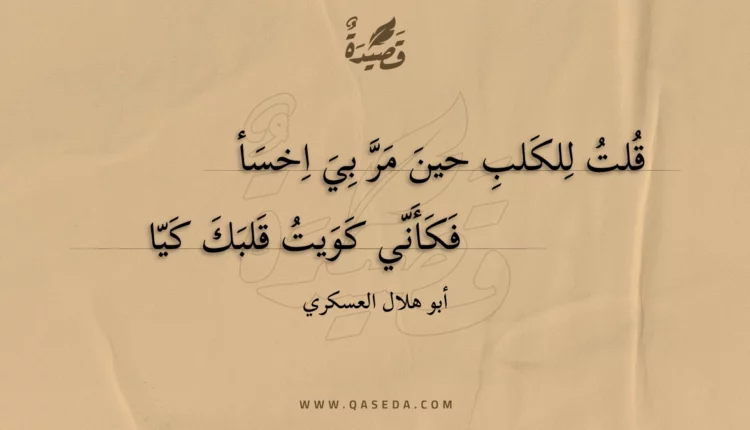 قَصِيدَةٌ
قُلتُ لِلكَلبِ حينَ مَرَّ بِيَ اِخسَأ
فَكَأَنّي كَوَيتُ قَلبَكَ كَيّا
أبو هلال العسكري
WWW.QASEDA.COM